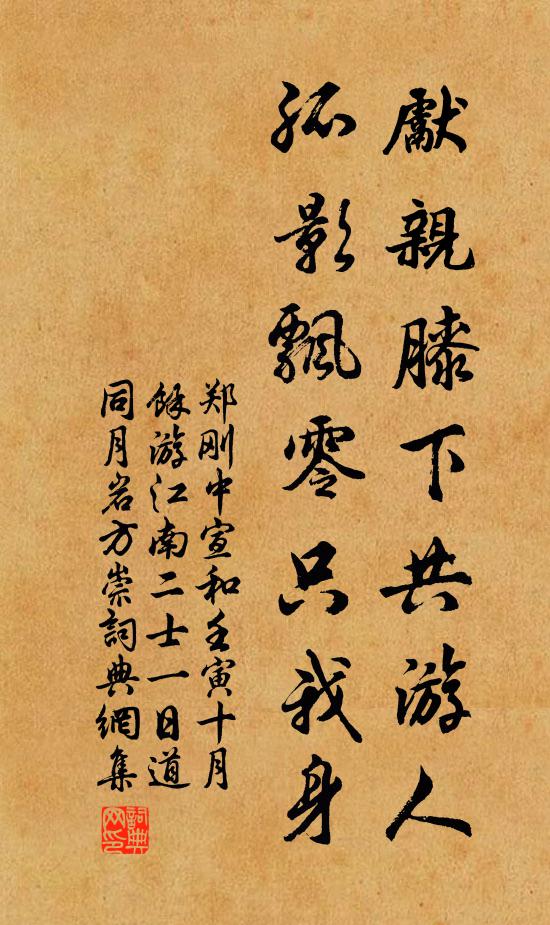 獻親膝下共游人
孤影飄零只我身
郑刚中宣和壬寅十月
餘游江南二士一日道
同月岩方崇詞典網集
詞典网印